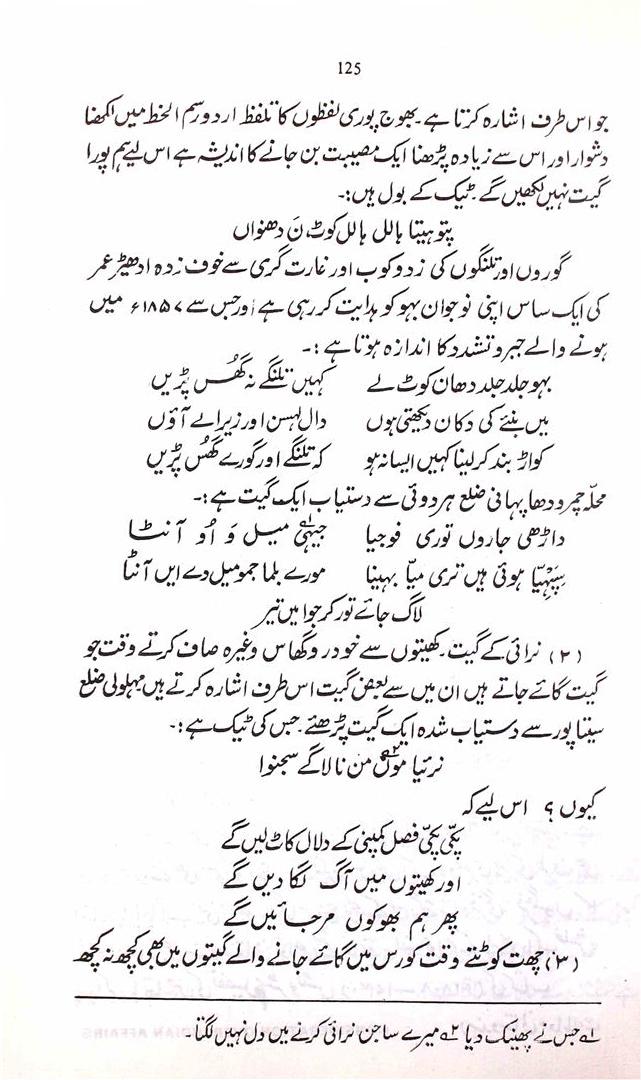 125
جو اس طرف اشارہ کرتا ہے۔ بھوج پوری لفظوں کا تلفظ اردو رسم الخط میں لکھنا
دشوار اور اس سے زیادہ پڑھنا ایک مصیبت بن جانے کا اندیشہ ہے اس لیے ہم پورا
گیت نہیں لکھیں گے۔ ٹیک کے بول ہیں:۔
پتوہیتا ہالل ہالل کوٹ نَ دھنواں
گوروں اور تلنگوں کی زد و کوب اور غارت گری سے خوف زدہ ادھیڑ عمر
کی ایک ساس اپنی نوجوان بہو کو ہدایت کر رہی ہے اور جس سے ۱۸۵۷ء میں
ہونے والے جبر و تشدد کا اندازہ ہوتا ہے:۔
بہو جلد جلد دھان کوٹ لے کہیں تلنگے نہ گھُس پڑیں
میں بنئے کی دکان دیکھتی ہوں دال لہسن اور زیرا لے آؤں
کواڑ بند کر لینا کہیں ایسا نہ ہو کہ تلنگے اور گورے گھُس پڑیں
محلہ چمرودھا پہانی ضلع ہردوئی سے دستیاب ایک گیت ہے:۔
داڑھی جاروں توری فوجیا جیہی۱؎ میل وَ اُو آنٹا
سِپہیا ہوئی ہیں تری میّا بہینا مورے بلما جمو میل دے ایں آنٹا
لاگ جائے تور کرجوا میں تیر
(۲) نرائی کے گیت۔ کھیتوں سے خودرو گھاس وغیرہ صاف کرتے وقت جو
گیت گائے جاتے ہیں ان میں سے بعض گیت اس طرف اشارہ کرتے ہیں مہولی ضلع
سیتا پور سے دستیاب شدہ ایک گیت پڑھئے۔ جس کی ٹیک ہے:۔
نرئیا موں۲؎ من نا لاگے سجنوا
کیوں؟ اس لیے کہ
پکّی پکّی فصل کمپنی کے دلال کاٹ لیں گے
اور کھیتوں میں آگ لگا دیں گے
پھر ہم بھوکوں مر جائیں گے
(۳) چھت کوٹتے وقت کورس میں گائے جانے والے گیتوں میں بھی کچھ نہ کچھ
۱؎ جس نے پھینک دیا ۲؎ میرے ساجن نرائی کرنے میں دل نہیں لگتا۔